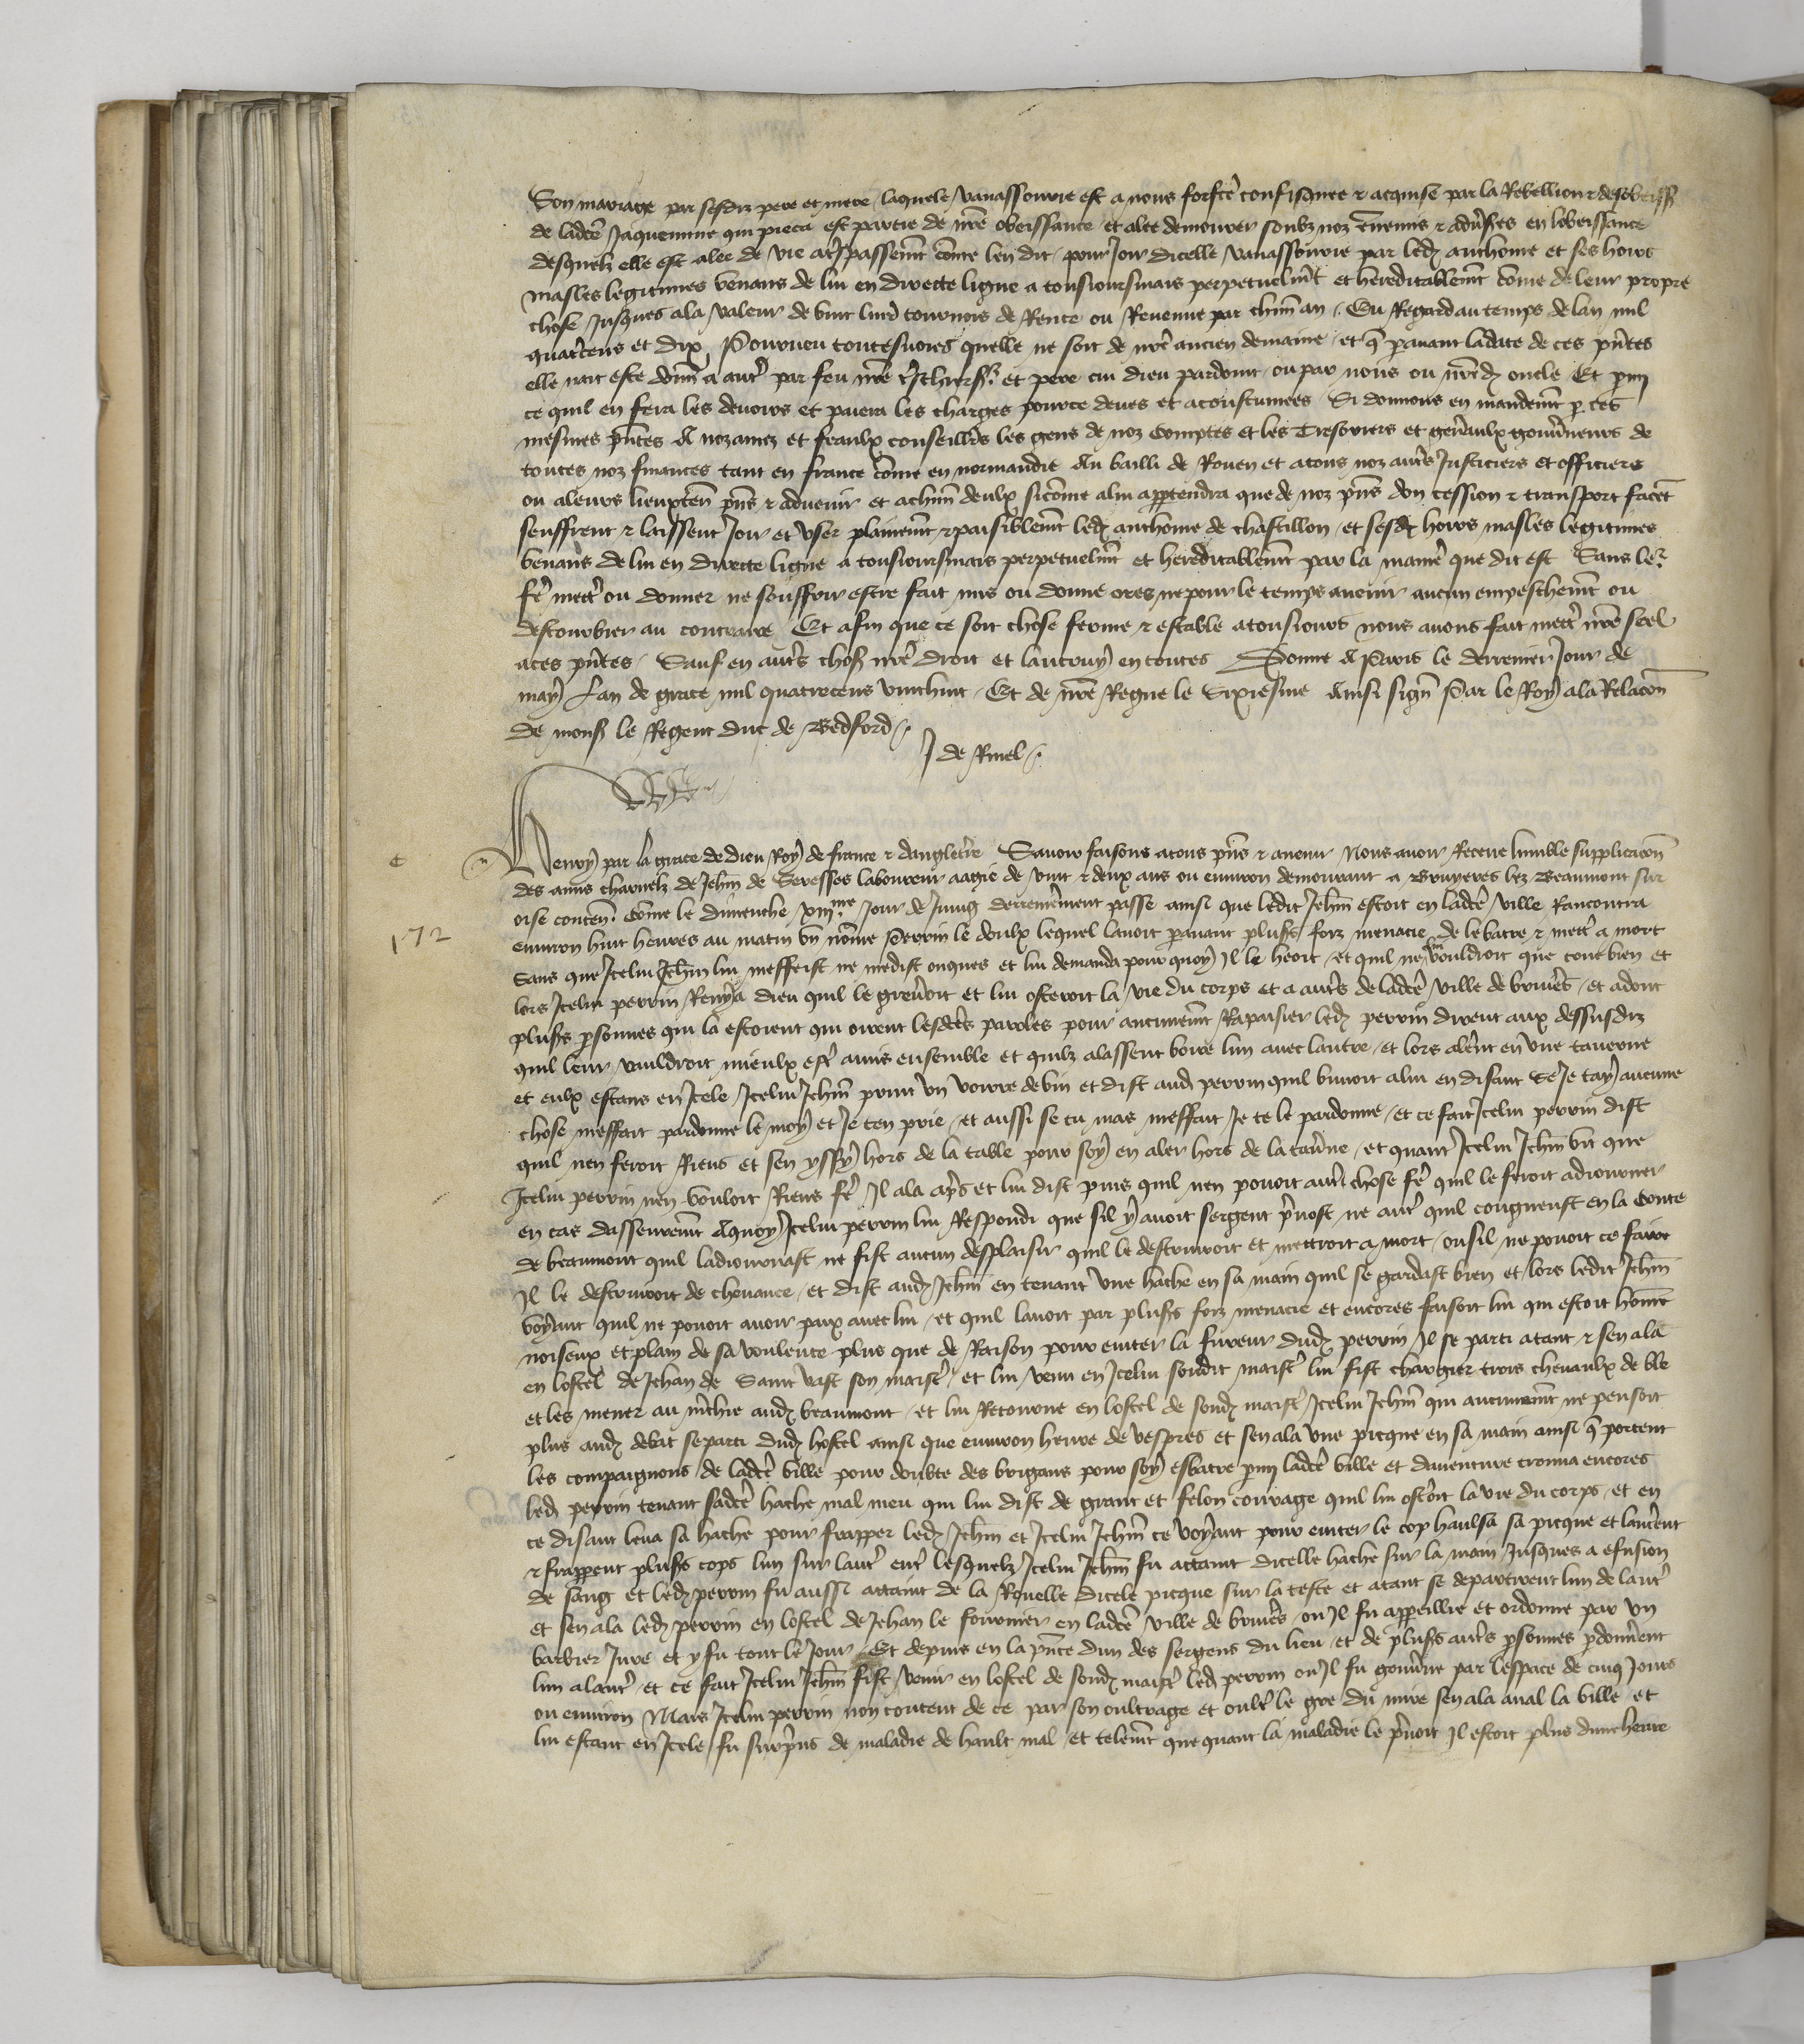 Son mariage par sesdiz pere et mere, laquele vavassourie est a nous forfcē confisquee & acquise par la Rebellion & desobeiss
de ladcē Jaquemine qui pieca est partie de nr̄e obeissance et alee demourer soubz noz ennemis & adv̄ses en lobeissance
desquelz elle est alee de vie a t̄spassem̄t cōme len dit, pour joir dicelle vavassourie par led anthoine et ses hoirs
masles legitimes venans de lui en directe ligne a tousioursmais perpetuelm̄t et hereditablem̄t cōme de leur propre
chose Jusques ala valeur de vint liur̄ tournois de Rente ou Revenue par chūn an, Eu Regard au temps de lan mil
quatrecens et dix, Pourveu toutesuoies quelle ne soit de nr̄e ancien demaine, et q̄ pavant ladate de ces pn̄tes
elle nait este donn̄ a aut̄ par feu nr̄e t̄schiers et pere cui dieu pardoint, ou par nous ou nr̄ed oncle Et pmi
ce quil en fera les devoirs et paiera les charges pource deues et acoustumees Si donnons en mandem̄t p ces
mesmes pn̄tes A noz amez et feaulx conseillrs les gens de noz Comptes et les Tresoriers et gen̄aulx gouv̄neurs de
toutes noz finances tant en france cōme en normandie Au bailli de Rouen et a tous noz aut̄s Justiciers et officiers
ou a leurs lieuxten̄ pn̄s & advenir et achūn deulx sicōme a lui appartendra que de noz pn̄s don cession & transport facēt
seuffrent & laissent Joir et user plainem̄t & paisiblem̄t led anthoine de chastillon, et sesd hoirs masles legitimes
venans de lui en directe ligne a tousioursmais perpetuelm̄t et hereditablem̄t par la manier̄ que dit est Sans le~
fē mett̄ ou donner ne souffrir estre fait mis ou donne ores ne pour le temps avenir aucun empeschem̄t ou
destourbier au contraire Et afin que ce soit chose ferme & estable atousiours nous avons fait mett̄ nr̄e seel
aces pn̄tes, Sauf en aut̄s chos nr̄e droit et lautruy en toutes Donne A Paris le derrenier Jour de
may Lan de grace mil quatrecens vinthuit, Et de nr̄e Regne le Sixiesme Ainsi sign̄ Par le Roy ala Relacōn
de mons le Regent duc de Bedford,
J de Rinel,
Henry par la grace de dieu Roy de france & dangleterr̄e Savoir faisons atous pn̄s & avenir Nous avoir Receue humble supplicacōn
des amis charnelz de Jehan̄ de Seresses laboureur aagie de vint & deux ans ou environ demourant a Bruyeres lez Beaumont sur
oise conten̄ Cōme le dimenche xiiime Jour de Juing derrenierement passe ainsi que ledit Jeh̄n estoit en ladcē ville Rancontra
172
environ huit heures au matin un nōme Perrin le doulx lequel lavoit pavant plus̄s foiz menacie de le batre & mett̄ a mort
sans que Jcelui Jeh̄n lui mesfeist ne medist onques et lui demanda pour quoy Jl le heoit, et quil ne lui vouldroit que tout bien et
lors Jcelui perrin Renya dieu quil le greveroit et lui osteroit la vie du corps et a aut̄s de ladcē ville de bruiers, et adont
plus̄s psonnes qui la estoient qui oirent lesdcēs paroles pour aucunem̄t Rapaisier led perrin dirent aux dessusdiz
quil leur vauldroit mieulx est̄ amis ensemble et quilz alassent boire lun avec lautre, et lors aler̄ent en une taverne
et eulx estans en Jcele Jcelui Jeh̄n print un voirre de vin et dist aud perrin quil buvoit a lui en disant Se Je tay aucune
chose meffait pardonne le moy et Je ten prie, et aussi se tu mas meffait Je te le pardonne, et ce fait Jcelui perrin dist
quil nen feroit Riens et sen yssy hors de la table pour soy en aler hors de la tav̄ne, et quant Jcelui Jeh̄n vit que
Jcelui perrin nen vouloit Riens fē Jl ala ap̄s et lui dist puis quil nen povoit aut̄ chose fē quil le feroit adiourner
en cas dasseurem̄t Aquoy Jcelui perrin lui Respondi que sil y avoit sergent p̄vost ne aut̄ quil congneust en la Conte
de beaumont quil ladiournast ne fist aucun desplaisir quil le destruiroit et mettroit a mort, ou sil ne povoit ce faire
Jl le destruiroit de chevance, et dist aud Jeh̄n en tenant une hache en sa main quil se gardast bien et lors ledit Jeh̄n
voyant quil ne povoit avoir paix avec lui, et quil lavoit par plus̄s foiz menacie et encores faisoit lui qui estoit hōme
noiseux et plain de sa voulente plus que de Raison pour eviter la fureur dud perrin Jl se parti atant & sen ala
en lostel de Jehan de Saint vast son maist̄, et lui venu en Jcelui sondit maist̄ lui fist chargier trois chevaulx de ble
et les mener au m̄chie aud beaumont, et lui Retourne en lostel de sond maist̄ Jcelui Jeh̄n qui aucunem̄t ne pensoit
plus aud debat separti dud hostel ainsi que environ heure de vespres et sen ala une picque en sa main ainsi q̄ portent
les compaignons de ladcē ville pour doubte des brigans pour soy esbatre pmi ladcē ville et daventure trouva encores
led perrin tenant sadcē hache mal meu qui lui dist de grant et felon courage quil lui ostoit la vie du corps, et en
ce disant leva sa hache pour frapper led Jeh̄n et Jcelui Jeh̄n ce voyant pour eviter le cop haulsa sa picque et lancer̄ent
& frapperent plus̄s cops lun sur laut̄ ent̄ lesquelz Jcelui Jeh̄n fu attaint dicelle hache sur la main Jusques a efusion
de sang et led perrin fu aussi attaint de la Rouelle dicele picque sur la teste et atant se departirent lun de laut̄
et sen ala led perrin en lostel de Jehan le fournier en ladcē ville de bruiers, ou Jl fu appareillie et ordonne par un
barbier Jure et y fu tout le Jour, Et depuis en la pn̄ce dun des sergens du lieu, et de plus̄s aut̄s psonnes pdonner̄ent
lun a laut̄, et ce fait Jcelui Jeh̄n fist venir en lostel de sond maist̄ led perrin ou Jl fu gouv̄ne par lespace de cinq Jours
ou environ Mais Jcelui perrin non content de ce par son oultrage et oult̄ le gre du mire sen ala aval la ville, et
lui estant en Jcele, fu surp̄ns de maladie de hault mal, et telem̄t que quant la maladie le p̄noit Jl estoit plus dune heure